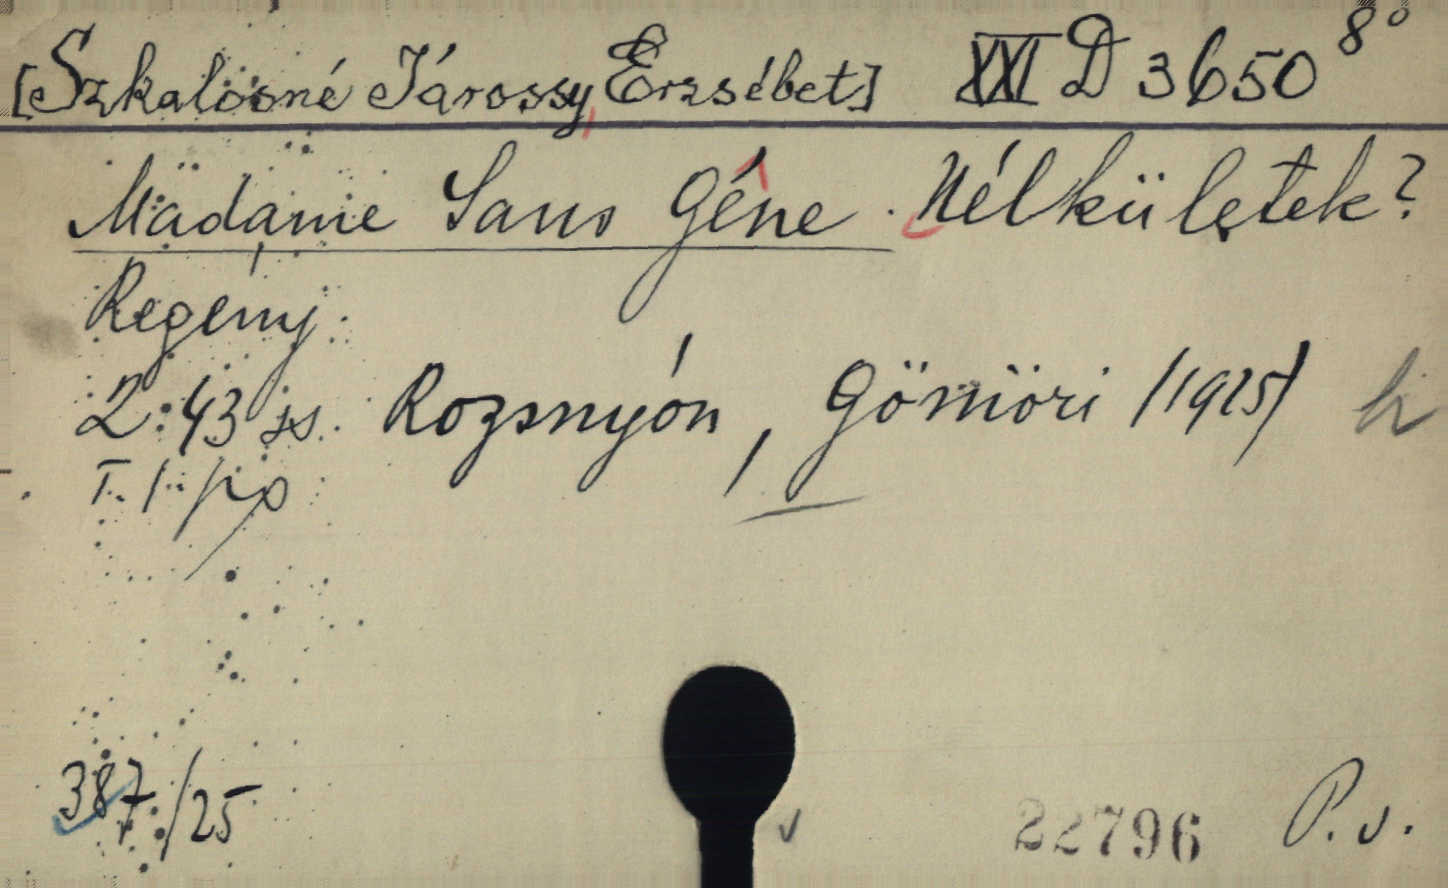 [Szkalosné Járossy, Erzsébet] XXI D 3650 8°
Madame Sans Gêne. Nélkületek?
Regény.
2:43 ss. Rozsnyón, Gömöri /1925/ h
387/25
22796 P. v.